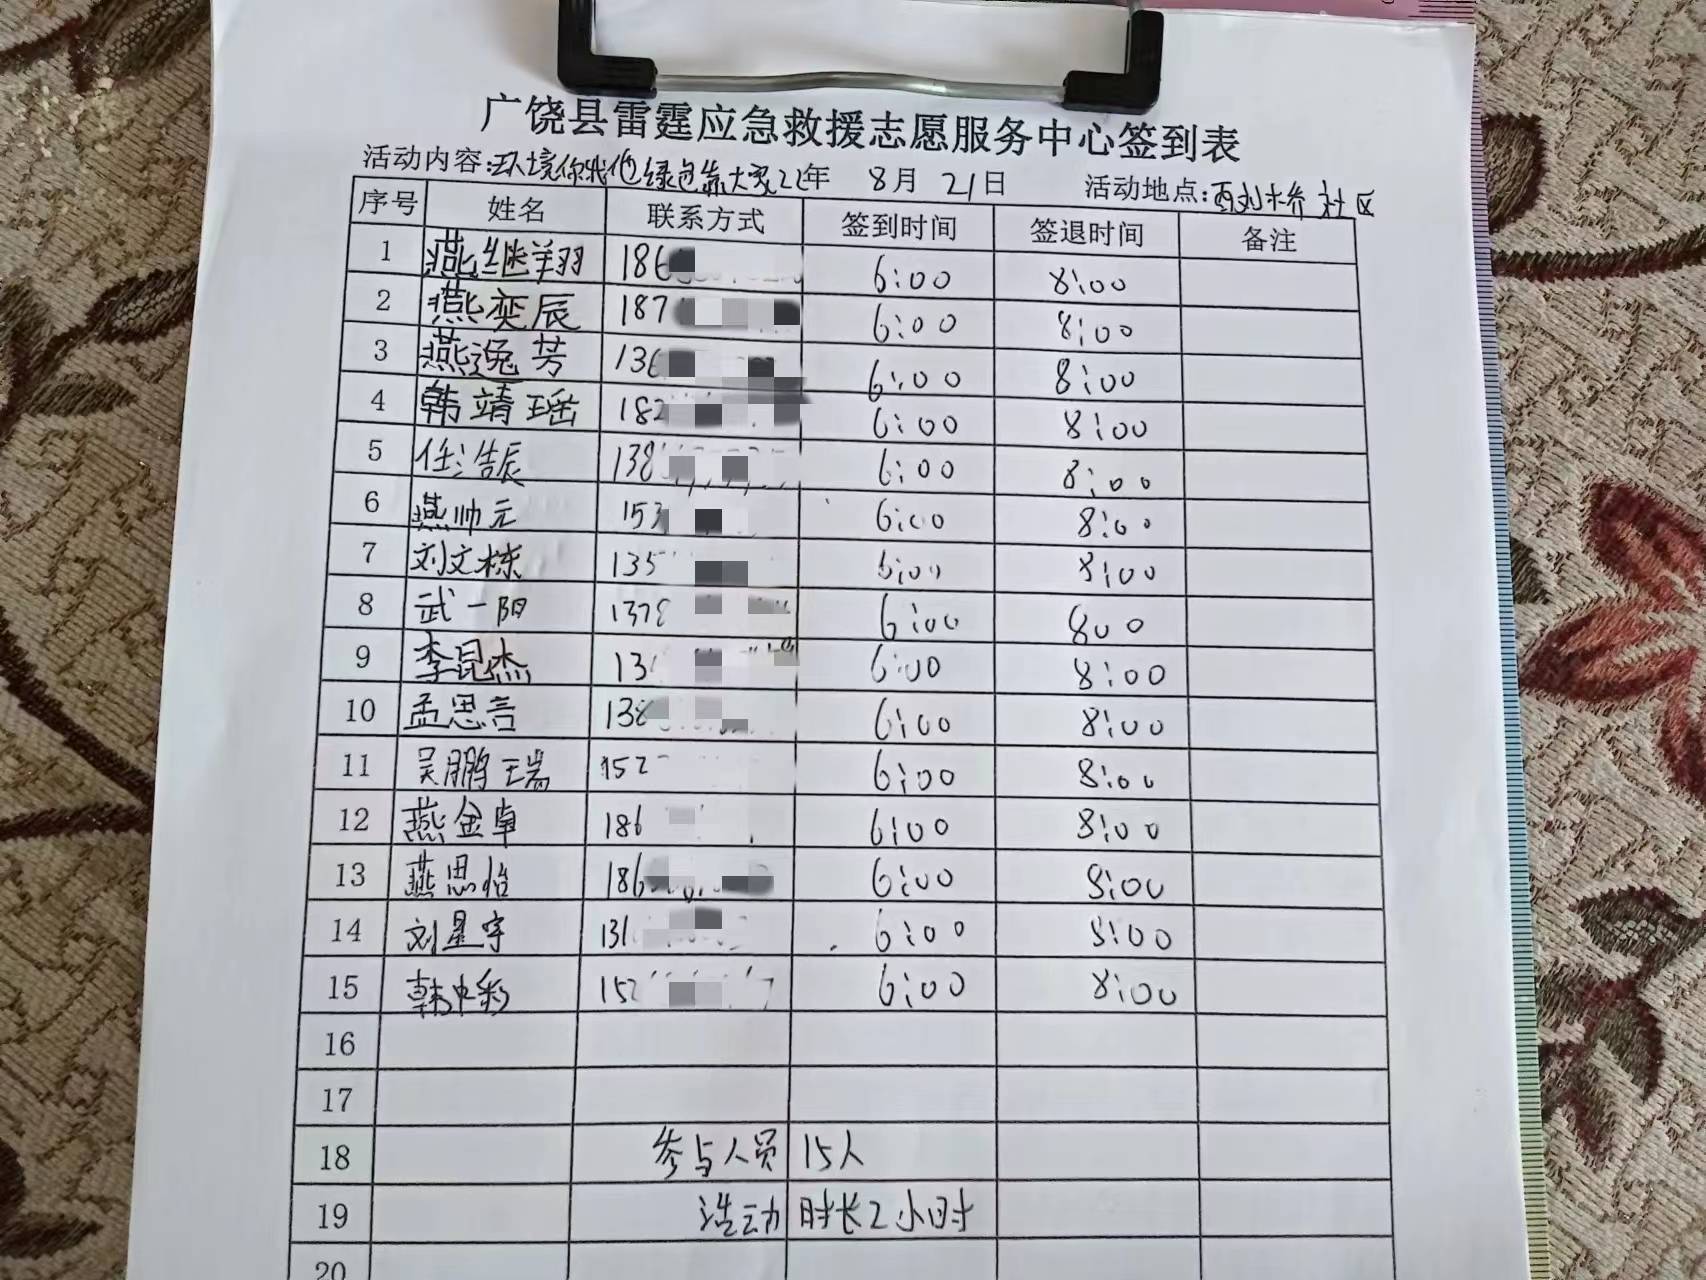 广饶县雷霆应急救援志愿服务中心签到表
活动内容:环境你我他绿色靠大家22年 8月 21日 活动地点:西刘桥社区
序号 姓名 联系方式 签到时间 签退时间 备注
1 燕继翔 186 6:00 8:00
2 燕奕辰 187 6:00 8:00
3 燕逸芳 136 6:00 8:00
4 韩靖瑶 182 6:00 8:00
5 任浩辰 138 6:00 8:00
6 燕帅元 153 6:00 8:00
7 刘文栋 135 6:00 8:00
8 武一阳 1378 6:00 800
9 李昆杰 13 6:00 8:00
10 孟思言 138 6:00 8:00
11 吴鹏瑞 152 6:00 8:00
12 燕金卓 186 6:00 8:00
13 燕思怡 186 6:00 8:00
14 刘星宇 131 6:00 8:00
15 韩中彩 152 6:00 8:00
16
17
18 参与人员 15人
19 活动 时长2小时
20